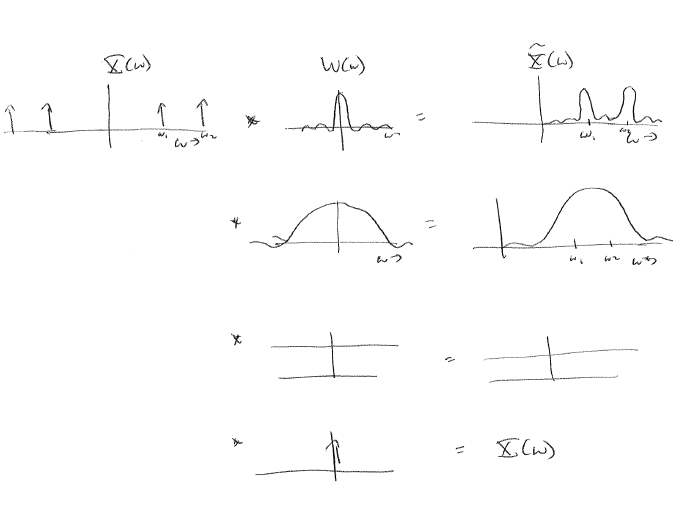 X(ω) W(ω) X̃(ω)
* =
ω₁ ω→ ω₂ ω ω₁ ω₂ ω→
* =
ω→ ω₁ ω₂ ω→
* =
* = X(ω)